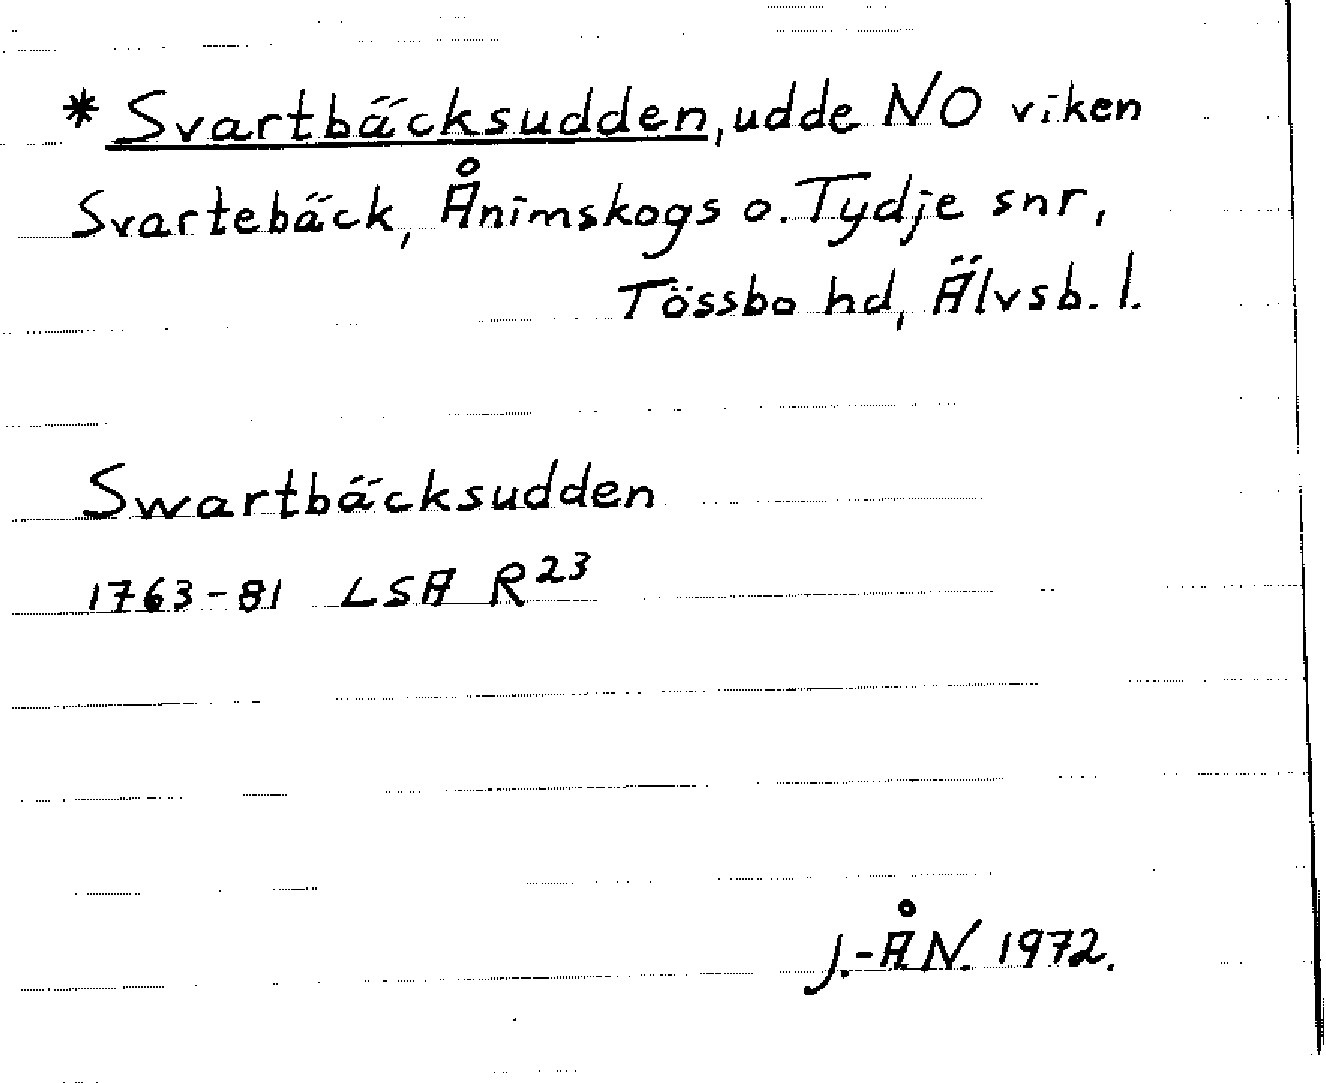 * Svartbäcksudden, udde NO viken
Svartebäck, Ånimskogs o. Tydje snr,
Tössbo hd, Älvsb. l.
Swartbäcksudden
1763-81 LSA R²³
J.-ÅN. 1972.